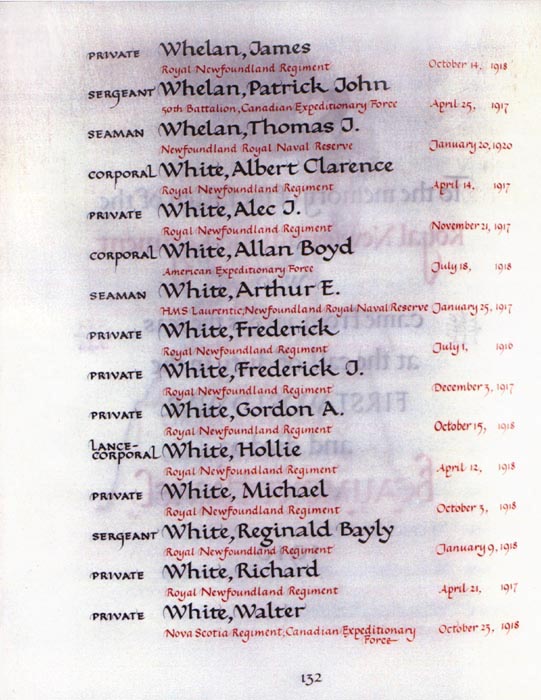 PRIVATE Whelan, James
Royal Newfoundland Regiment October 14, 1918
SERGEANT Whelan, Patrick John
50th Battalion, Canadian Expeditionary Force April 25, 1917
SEAMAN Whelan, Thomas J.
Newfoundland Royal Naval Reserve January 20, 1920
CORPORAL White, Albert Clarence
Royal Newfoundland Regiment April 14, 1917
PRIVATE White, Alec J.
Royal Newfoundland Regiment November 21, 1917
CORPORAL White, Allan Boyd
American Expeditionary Force July 18, 1918
SEAMAN White, Arthur E.
HMS Laurentic, Newfoundland Royal Naval Reserve January 25, 1917
PRIVATE White, Frederick
Royal Newfoundland Regiment July 1, 1916
PRIVATE White, Frederick J.
Royal Newfoundland Regiment December 3, 1917
PRIVATE White, Gordon A.
Royal Newfoundland Regiment October 15, 1918
LANCE-
CORPORAL White, Hollie
Royal Newfoundland Regiment April 12, 1918
PRIVATE White, Michael
Royal Newfoundland Regiment October 3, 1918
SERGEANT White, Reginald Bayly
Royal Newfoundland Regiment January 9, 1918
PRIVATE White, Richard
Royal Newfoundland Regiment April 21, 1917
PRIVATE White, Walter
Nova Scotia Regiment, Canadian Expeditionary October 23, 1918
Force
132